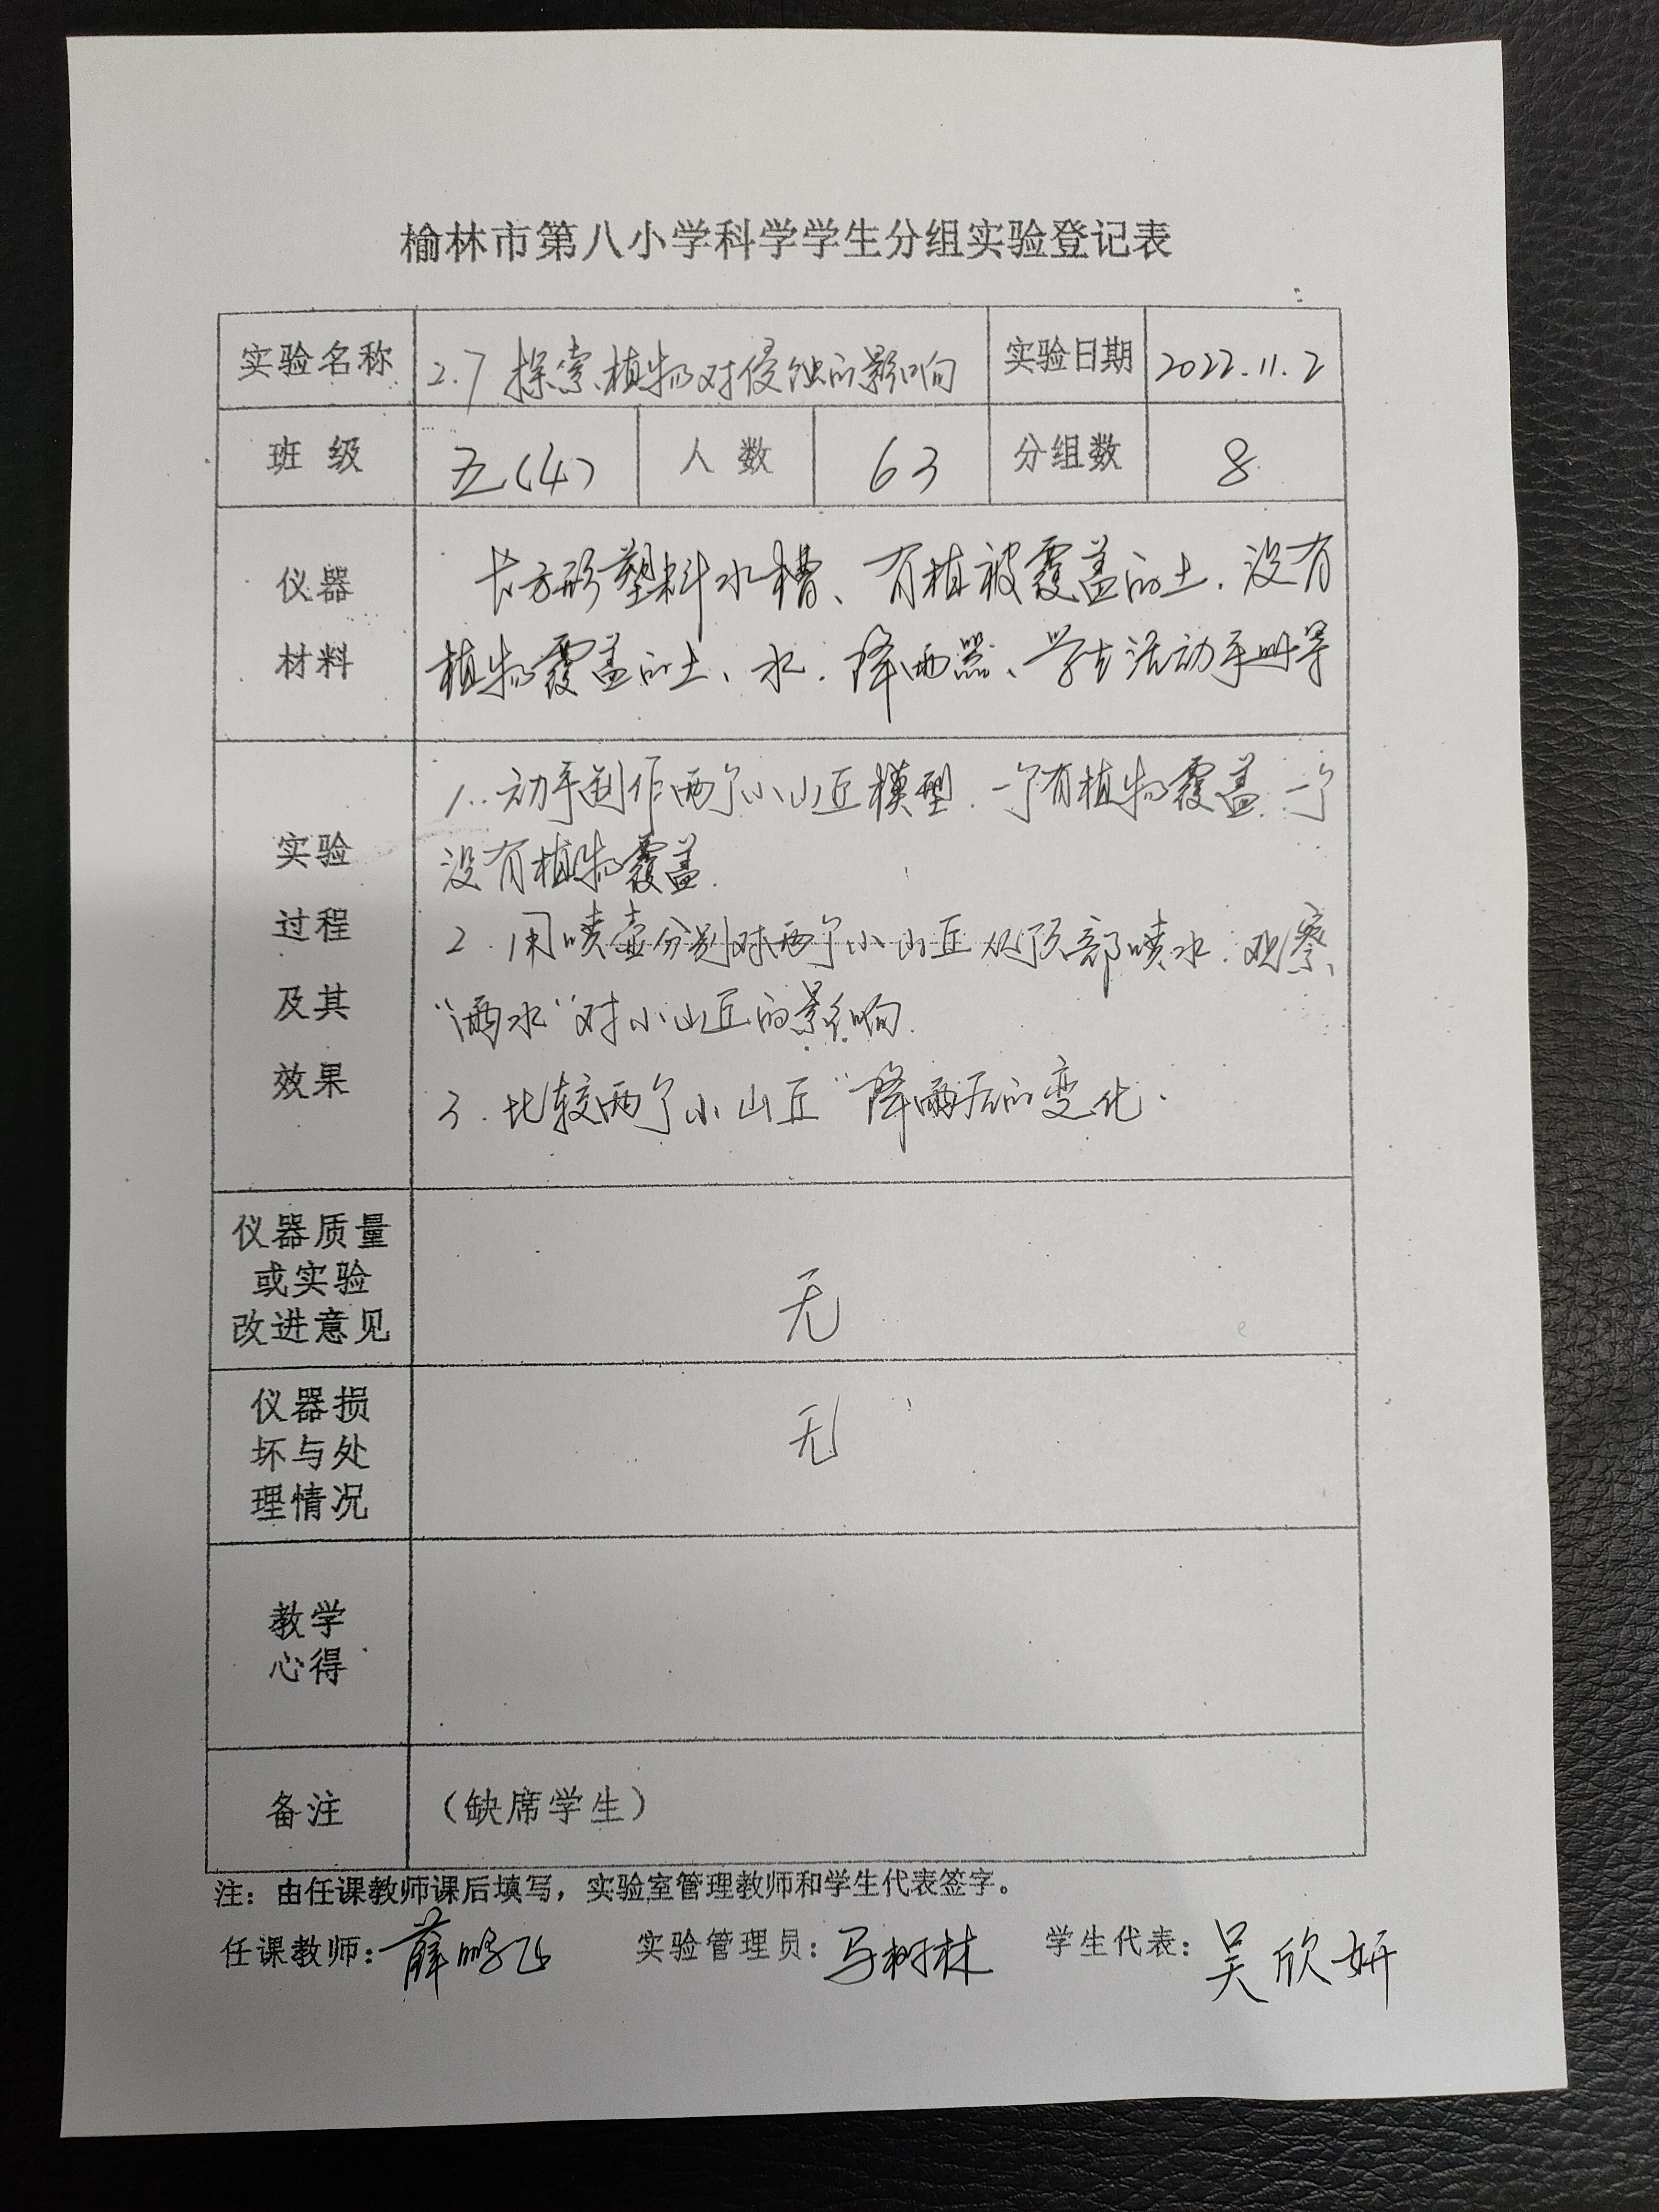 榆林市第八小学科学学生分组实验登记表
实验名称 2.7 探索植物对侵蚀的影响 实验日期 2022.11.2
班 级 五(4) 人 数 63 分组数 8
仪器
材料
长方形塑料水槽、有植被覆盖的土、没有
植物覆盖的土、水、降雨器、学生活动手册等
实验
过程
及其
效果
1. 动手制作两个小山丘模型.一个有植物覆盖.一个
没有植物覆盖.
2. 用喷壶分别对两个小山丘从顶部喷水.观察
“雨水”对小山丘的影响.
3. 比较两个小山丘“降雨后的变化.
仪器质量
或实验
改进意见
无
仪器损
坏与处
理情况
无
教学
心得
备注 （缺席学生）
注：由任课教师课后填写，实验室管理教师和学生代表签字。
任课教师：薛鹏飞 实验管理员：马树林 学生代表：吴欣妍